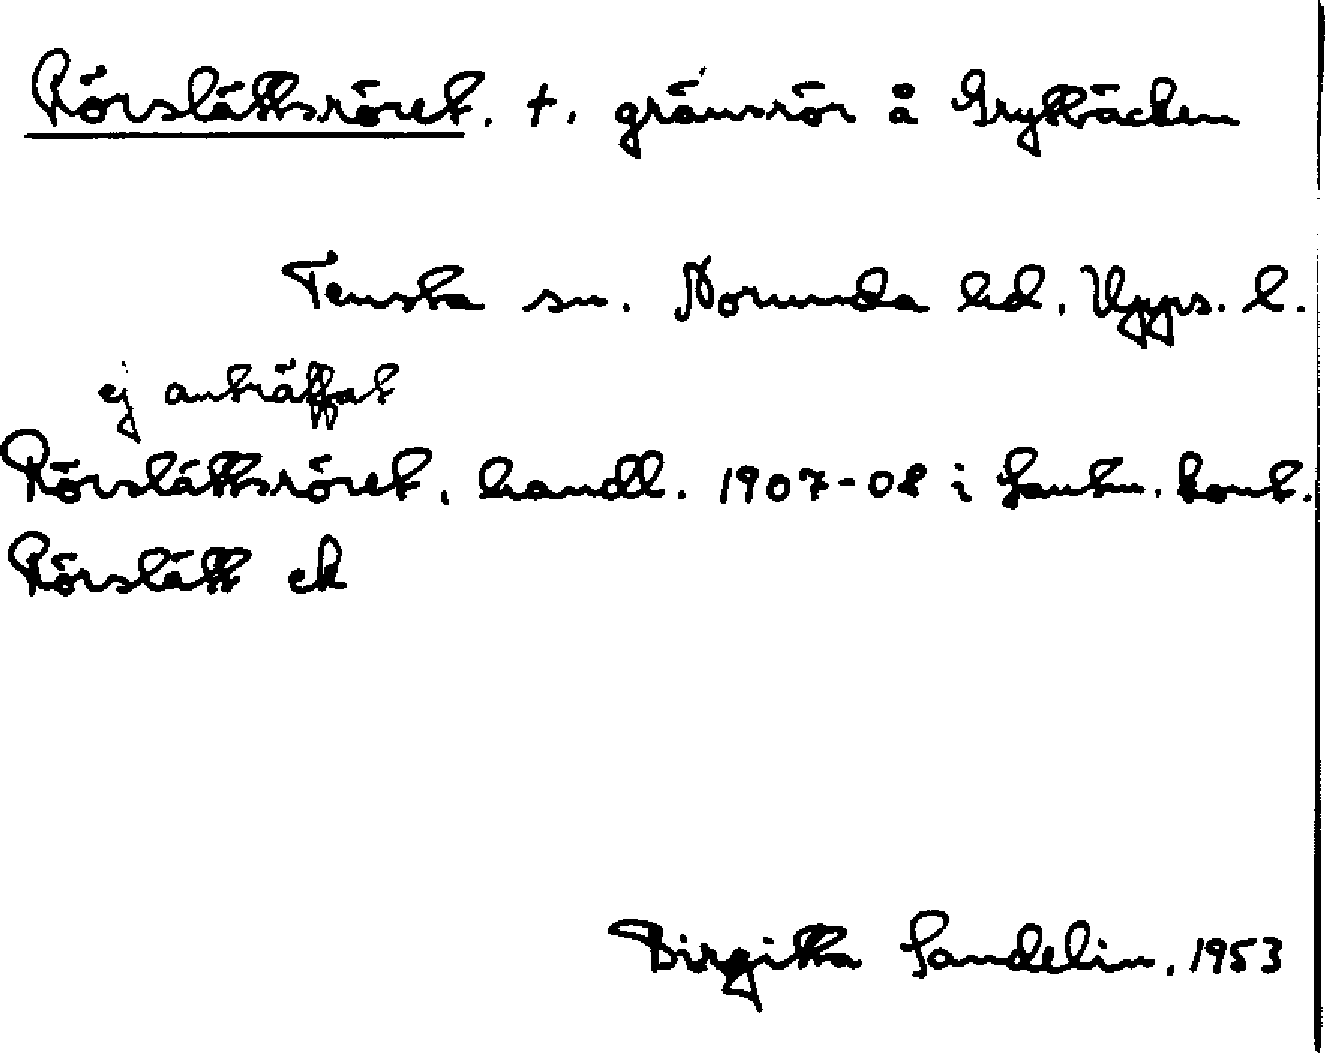 Rörslättsröret. t. gränsrör å Grytbäcken
Tenska sn. Norunda hd. Upps. l.
ej anträffat
Rörslättsröret, handl. 1907-08 i lantm. kont.
Rörslätt ek
Birgitta Sandelin, 1953